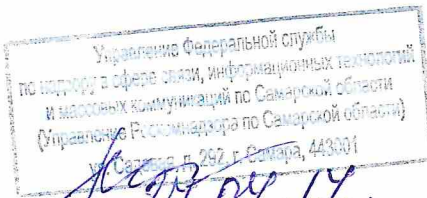 Управление Федеральной службы
по надзору в сфере связи, информационных технологий
и массовых коммуникаций по Самарской области
(Управление Роскомнадзора по Самарской области)
ул. Садовая, д. 292, г. Самара, 443001
04 14